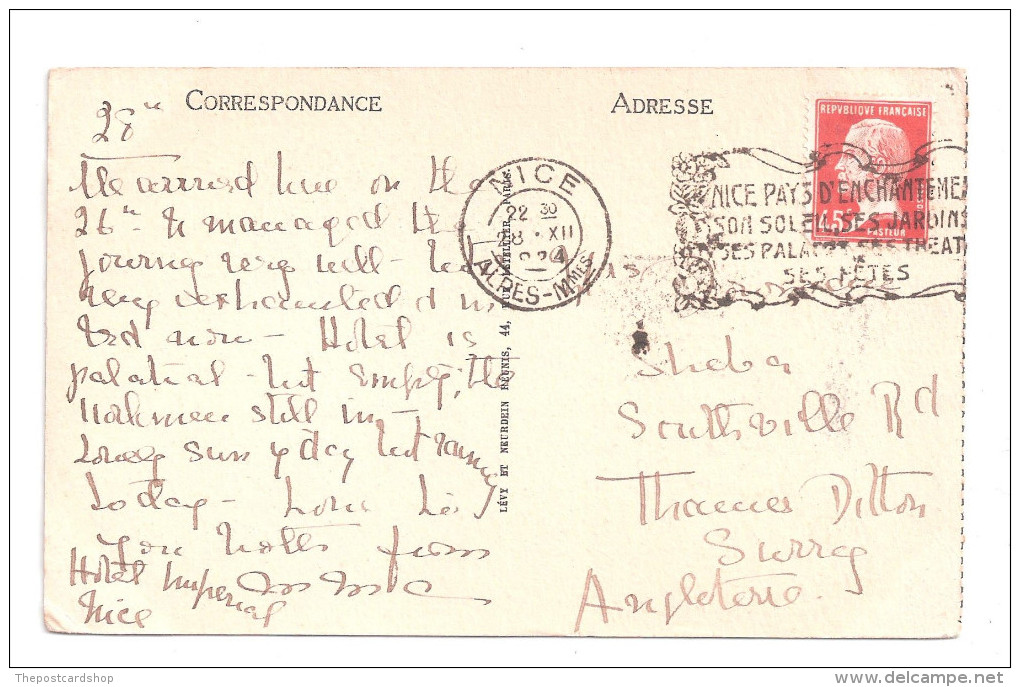 CORRESPONDANCE
28th
We arrived here on the
26th & managed the
journey very well -
very exhausted
- Hotel is
palatial - but empty, the
workmen still in -
Lovely sun yday but rainy
today -
from
Hotel Imperial
Nice
ADRESSE
REPVBLIQVE FRANÇAISE
45
PASTEUR
NICE
22 30
8 • XII
ALPES-MMES
NICE PAYS D'ENCHANTEME
SON SOLEIL, SES JARDINS
SES PALA SES THEAT
SES FÊTES
LÉVY ET NEURDEIN RÉUNIS, 44, RUE LETELLIER, PARIS
Sheba
Southville Rd
Thames Ditton
Surrey
Angleterre
Thepostcardshop
delcampe.net